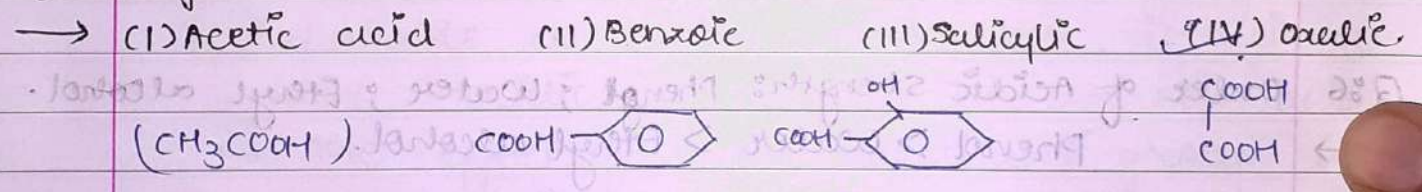 → (I) Acetic acid (II) Benzoic (III) Salicylic (IV) Oxalic.
OH COOH
(CH3COOH). COOH COOH COOH